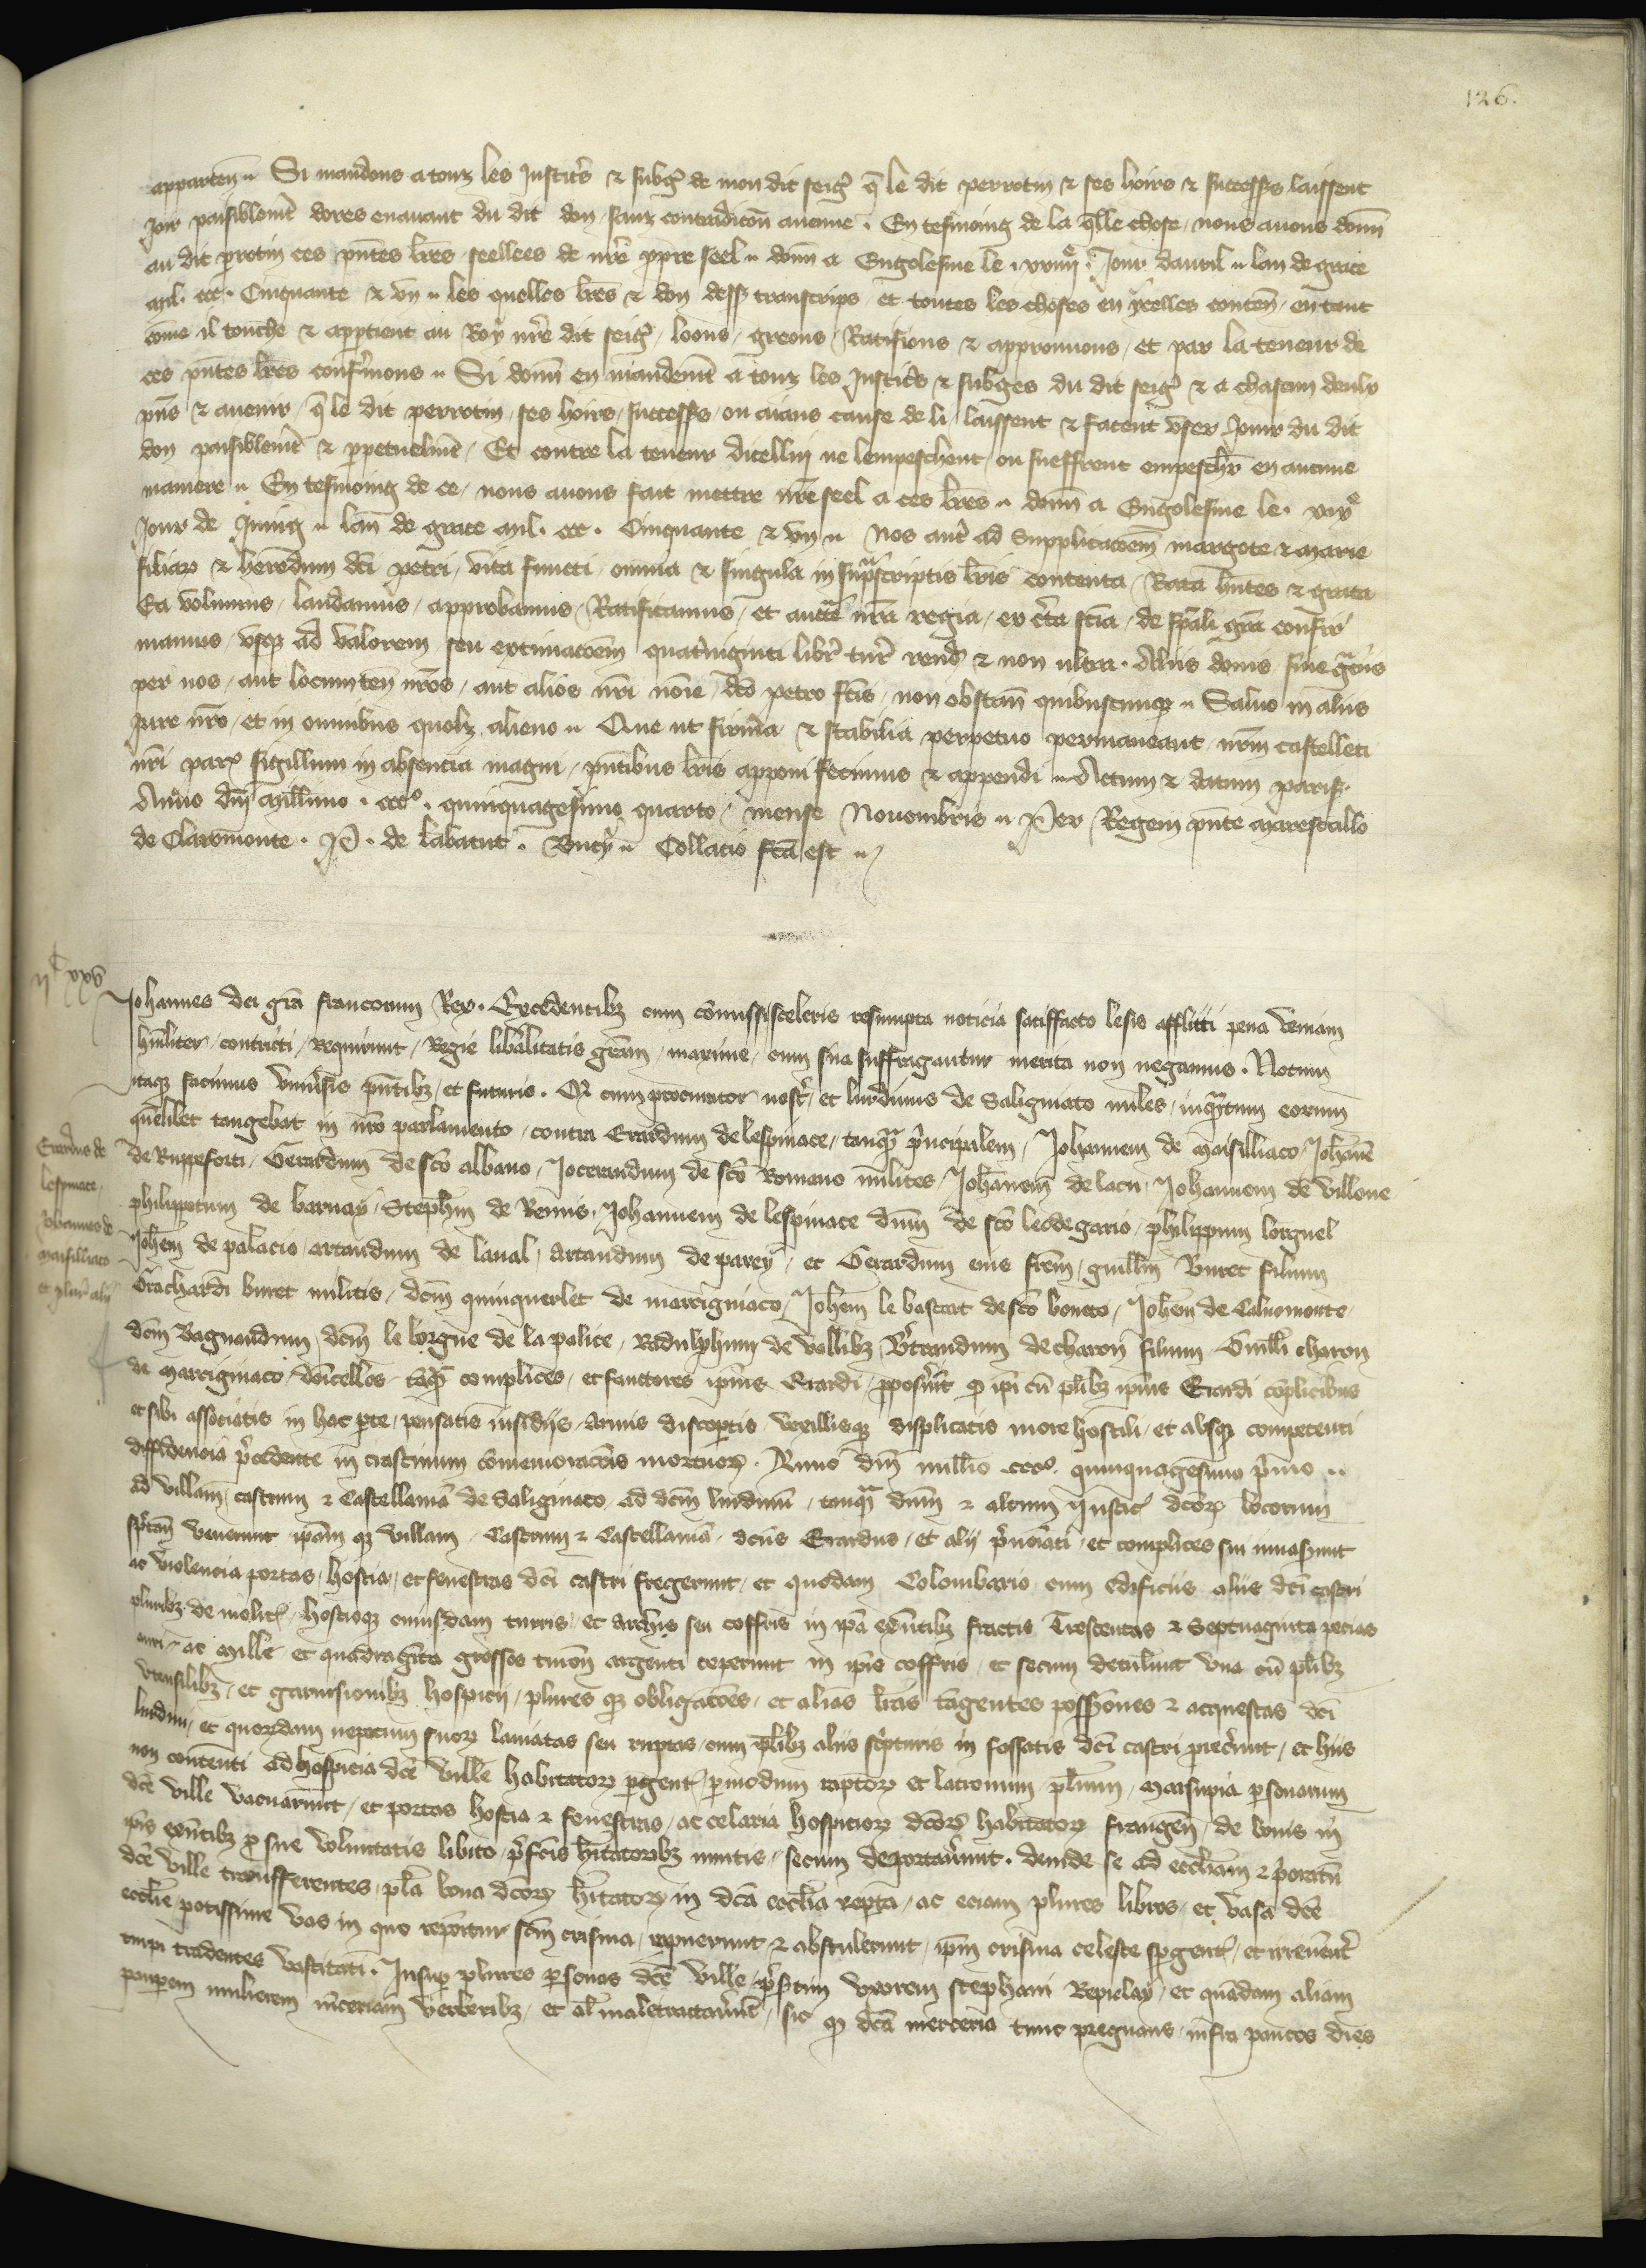 126.
apparten̄ . Si mandons a touz les Justic̄s & subḡ de mon dit seiḡ q̄ le dit perrotin & ses hoirs & success̄s laissent
Joir paisiblemēt dores enavant du dit don sanz contradiccōn aucune . En tesmoing de la q̄lle chose nous avons donn̄
au dit p̄rotin ces pn̄tes lr̄es seellees de nr̄e p̄pre seel . donn̄ a Engolesme le . xxiiijͤ . Jour davril . lan de grace
mil . ccc . Cinquante & un . les quelles lr̄es & don dess̄ transcrips et toutes les choses en ycelles conten̄ en tant
cōme il touche & app̄tient au Roy nr̄e dit seiḡ loons greons Ratifions & approuvons et par la teneur de
ces pn̄tes lr̄es conf̄mons . Si donn̄ en mandemēt a touz les Justic̄s & subges du dit seiḡ & a chascun deulx
pn̄s & avenir q̄ le dit perrotin ses hoirs success̄s ou aians cause de li laissent & facent user Joir du dit
don paisiblemēt & p̄petuelmēt Et contre la teneur dicellui ne lempeschent ou sueffrent empesch̄r en aucune
maniere . En tesmoing de ce nous avons fait mettre nr̄e seel a ces lr̄es . donn̄ a Engolesme le . xixͤ
Jour de Juing . lan de grace mil . ccc . Cinquante & un . Nos aut̄ ad Supplicacōem margote & marie
filiar̄ & heredum dc̄i petri vita functi omnia & singula in sup̄scriptis lr̄is contenta Rata hn̄tes & grata
Ea volumus laudamus approbamus Ratificamus et auctē nr̄a regia ex c̄ta sc̄ia de sp̄ali gr̄a confir
mamus usq̄ ad valorem seu extimacōem quat̄viginti libr̄ tur̄ rend̄ & non ultra . Aliis donis sive gr̄ciis
per nos aut locumten̄ nr̄os aut alios nr̄i nōie dc̄o petro fc̄is non obstan̄ quibuscunq̄ . Salvo in aliis
Jure nr̄o et in omnibus quol̄z alieno . Que ut firma & stabilia perpetuo permaneant nr̄m castelleti
nr̄i par̄ sigillum in absencia magni pn̄tibus lr̄is apponi fecimus & appendi . Actum & datum paris̄
Anno dn̄i millimo . cccº . quinquagesimo quarto mense Novembris . Per Regem pn̄te marescallo
de Claromonte . P . de labatut . Buc̄y . Collacio fc̄a est .
ijᶜ xxv
Johannes dei gr̄a francorum Rex . Excedentibz cum cōmissi sceleris resumpta noticia satisfacto lesis afflicti pena veniam
hūiliter contricti requirunt Regie lib̄alitatis gr̄am maxime cum sua suffragantur merita non negamus . Notum
itaq̄ facimus univ̄sis pn̄tibz et futuris . Q̄ cum procurator nost̄ et lurdinus de Saligniaco miles inq̄ntum eorum
quēlibet tangebat in nr̄o parlamento contra Erardum de lespinace tanq̄ p̄ncipalem Johannem de maisilliaco Joh̄anē
de Ruppeforti Gerardum de sc̄o albano Jocerandum de sc̄o Romano milites Joh̄anem de lacu Johannem de villone
philippotum de barnay Steph̄m de Remis Johannem de lespinace dn̄m de sc̄o leodegario philippum lorguel
Joh̄em de palacio artaudum de laval artaudum de parey et Gerardum eius fr̄em guill̄m Buret filium
Grachardi buret militis dc̄m quinquerlet de marcigniaco Joh̄em le bastart de sc̄o boneto Joh̄em de Calvomonte
dc̄m Bagnaudum dc̄m le borgne de la palice Radulphum de vallibz B̄trandum de charon filium Guill̄i charon
de marcigniaco dōicellos tāq̄ complices et fauctores ipīus Erardi p̄pos̄uit q̄ ip̄i cū pl̄ibz ipīus Erardi cōplicibus
et sibi associatis in hac p̄te pensatis insidiis armis discop̄tis vexillisq̄ displicatis more hostili et absq̄ competenti
diffidencia p̄cedente in crastinum cōmemoracōis mortuor̄ . Anno dn̄i mill̄io . cccº . quinquagesimo p̄mo .
ad villam castrum & castellaniā de Saligniaco ad dc̄m lurdinū tanq̄ dn̄m & altum Justic̄ dc̄or̄ locorum
sp̄tan̄ venerunt ip̄am q̄ villam Castrum & Castellaniā dc̄us Erardus et alij p̄nōiati et complices sui invas̄unt
ac violencia portas hostia et fenestras dc̄i castri fregerunt et quodam Colombario cum edificiis aliis dc̄i castri
pluribz demolit̄ hostioq̄ cuiusdam turris et archis seu coffris in ip̄a exn̄tibz fractis Trescentas & Septuaginta pecias
auri ac mille et quadraginta grossos turon̄ argenti ceperunt in ip̄is coffris et secum detul̄unt una cū pl̄ibz
utensilibz et garnisionibz hospicij plures q̄ obligacōes et alias lr̄as tāgentes possess̄iones & acquestas dc̄i
lurdini et quor̄dam nepotum suor̄ laniatas seu ruptas cum pl̄ibz aliis sc̄pturis in fossatis dc̄i castri proiec̄unt et hiis
non contenti ad hospicia dc̄e ville habitator̄ p̄gent̄ p̄ modum raptor̄ et latronum pl̄imū marsupia p̄sonarum
dc̄e ville vacuar̄unt et portas hostia & fenestras ac celaria hospicior̄ dc̄or̄ habitator̄ frangen̄ de bonis in
ip̄is exn̄tibz p̄ sue voluntatis libito p̄fc̄is h̄itatoribz invitis secum deportav̄unt . deinde se ad eccl̄iam & p̄oratū
dc̄e ville transferentes pl̄a bona dc̄or̄ h̄itator̄ in dc̄a eccl̄ia rep̄ta ac eciam plures libros et vasa dc̄e
eccl̄ie potissime vas in quo rep̄oitur sc̄m crisma rapuerunt & abstulerunt ip̄m crisma celeste sp̄gent̄ et irrev̄ent̄
turpi tradentes vastitati . Insup̄ plures p̄sonas dc̄e ville p̄s̄tim uxorem stephani Repiclay et quādam aliam
paup̄em mulierem m̄ceriam v̄beribz et al̄ maletractav̄unt sic q̄ dc̄a merceria tunc pregnans infra paucos dies
Erardus de
lespinace
Johannes de
maisilliaco
et plur̄ alij